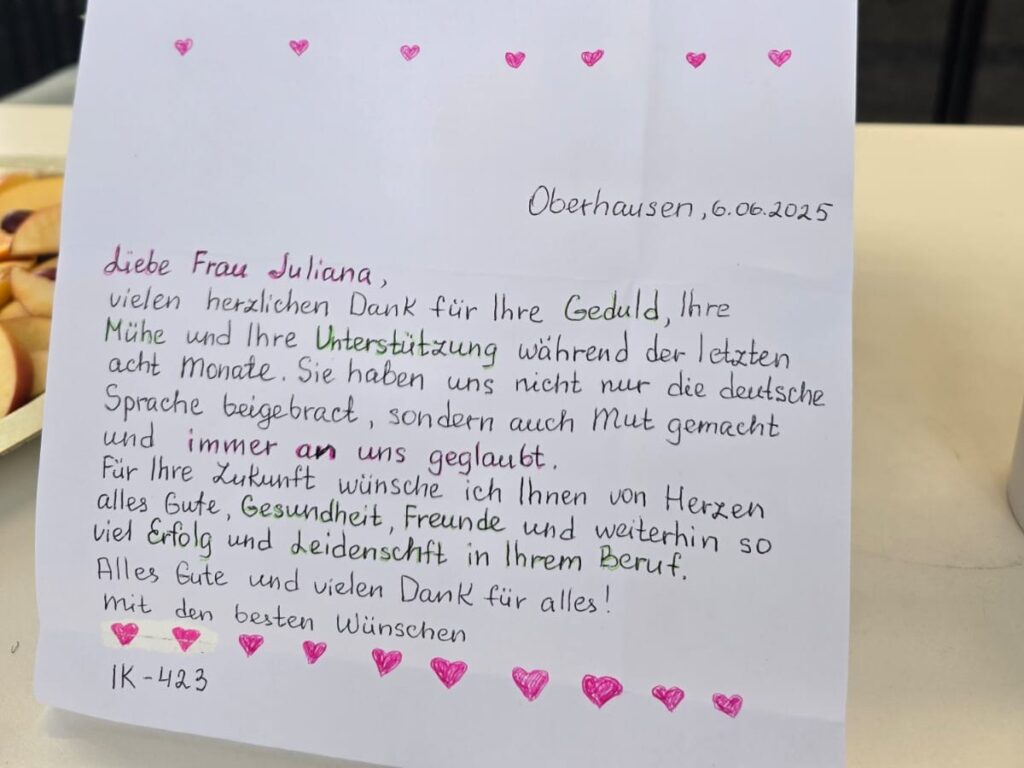 Oberhausen, 6.06.2025
Liebe Frau Juliana,
vielen herzlichen Dank für Ihre Geduld, Ihre
Mühe und Ihre Unterstützung während der letzten
acht Monate. Sie haben uns nicht nur die deutsche
Sprache beigebract, sondern auch Mut gemacht
und immer an uns geglaubt.
Für Ihre Zukunft wünsche ich Ihnen von Herzen
alles Gute, Gesundheit, Freunde und weiterhin so
viel Erfolg und Leidenschft in Ihrem Beruf.
Alles Gute und vielen Dank für alles!
mit den besten Wünschen
IK-423